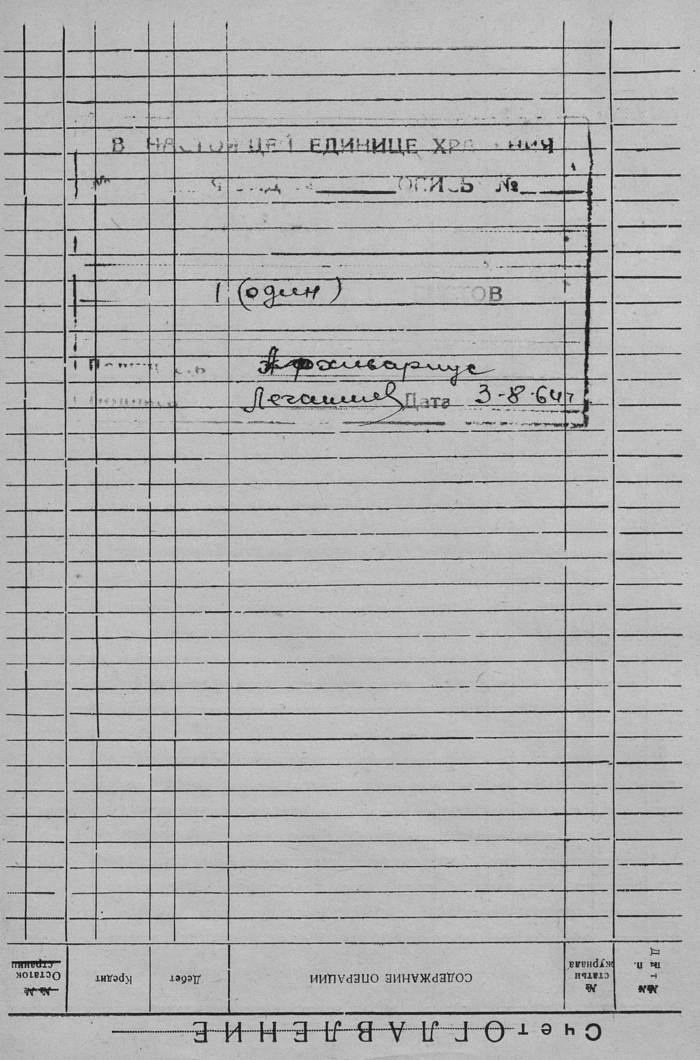 В НАСТОЯЩЕЙ ЕДИНИЦЕ ХРАНЕНИЯ
ОПИСЬ №
1 (один) ЛИСТОВ
Архивариус
Дата 3-8-64г
Остаток страниц
Кредит
Дебет
СОДЕРЖАНИЕ ОПЕРАЦИИ
№ статьи журнала
№№ п п.
Дата
Счет ОГЛАВЛЕНИЕ